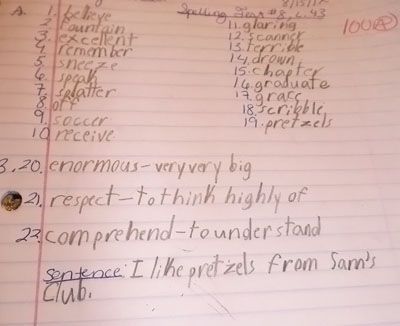 A. 1. believe
2. fountain
3. excellent
4. remember
5. sneeze
6. speak
7. splatter
8. off
9. soccer
10 receive
Spelling Test #3
100 A
11. glaring
12. scanner
13. terrible
14. drown
15. chapter
16. graduate
17. grace
18. scribble
19. pretzels
B. 20. enormous - very very big
21. respect - to think highly of
22. comprehend - to understand
sentence: I like pretzels from Sam's
Club.